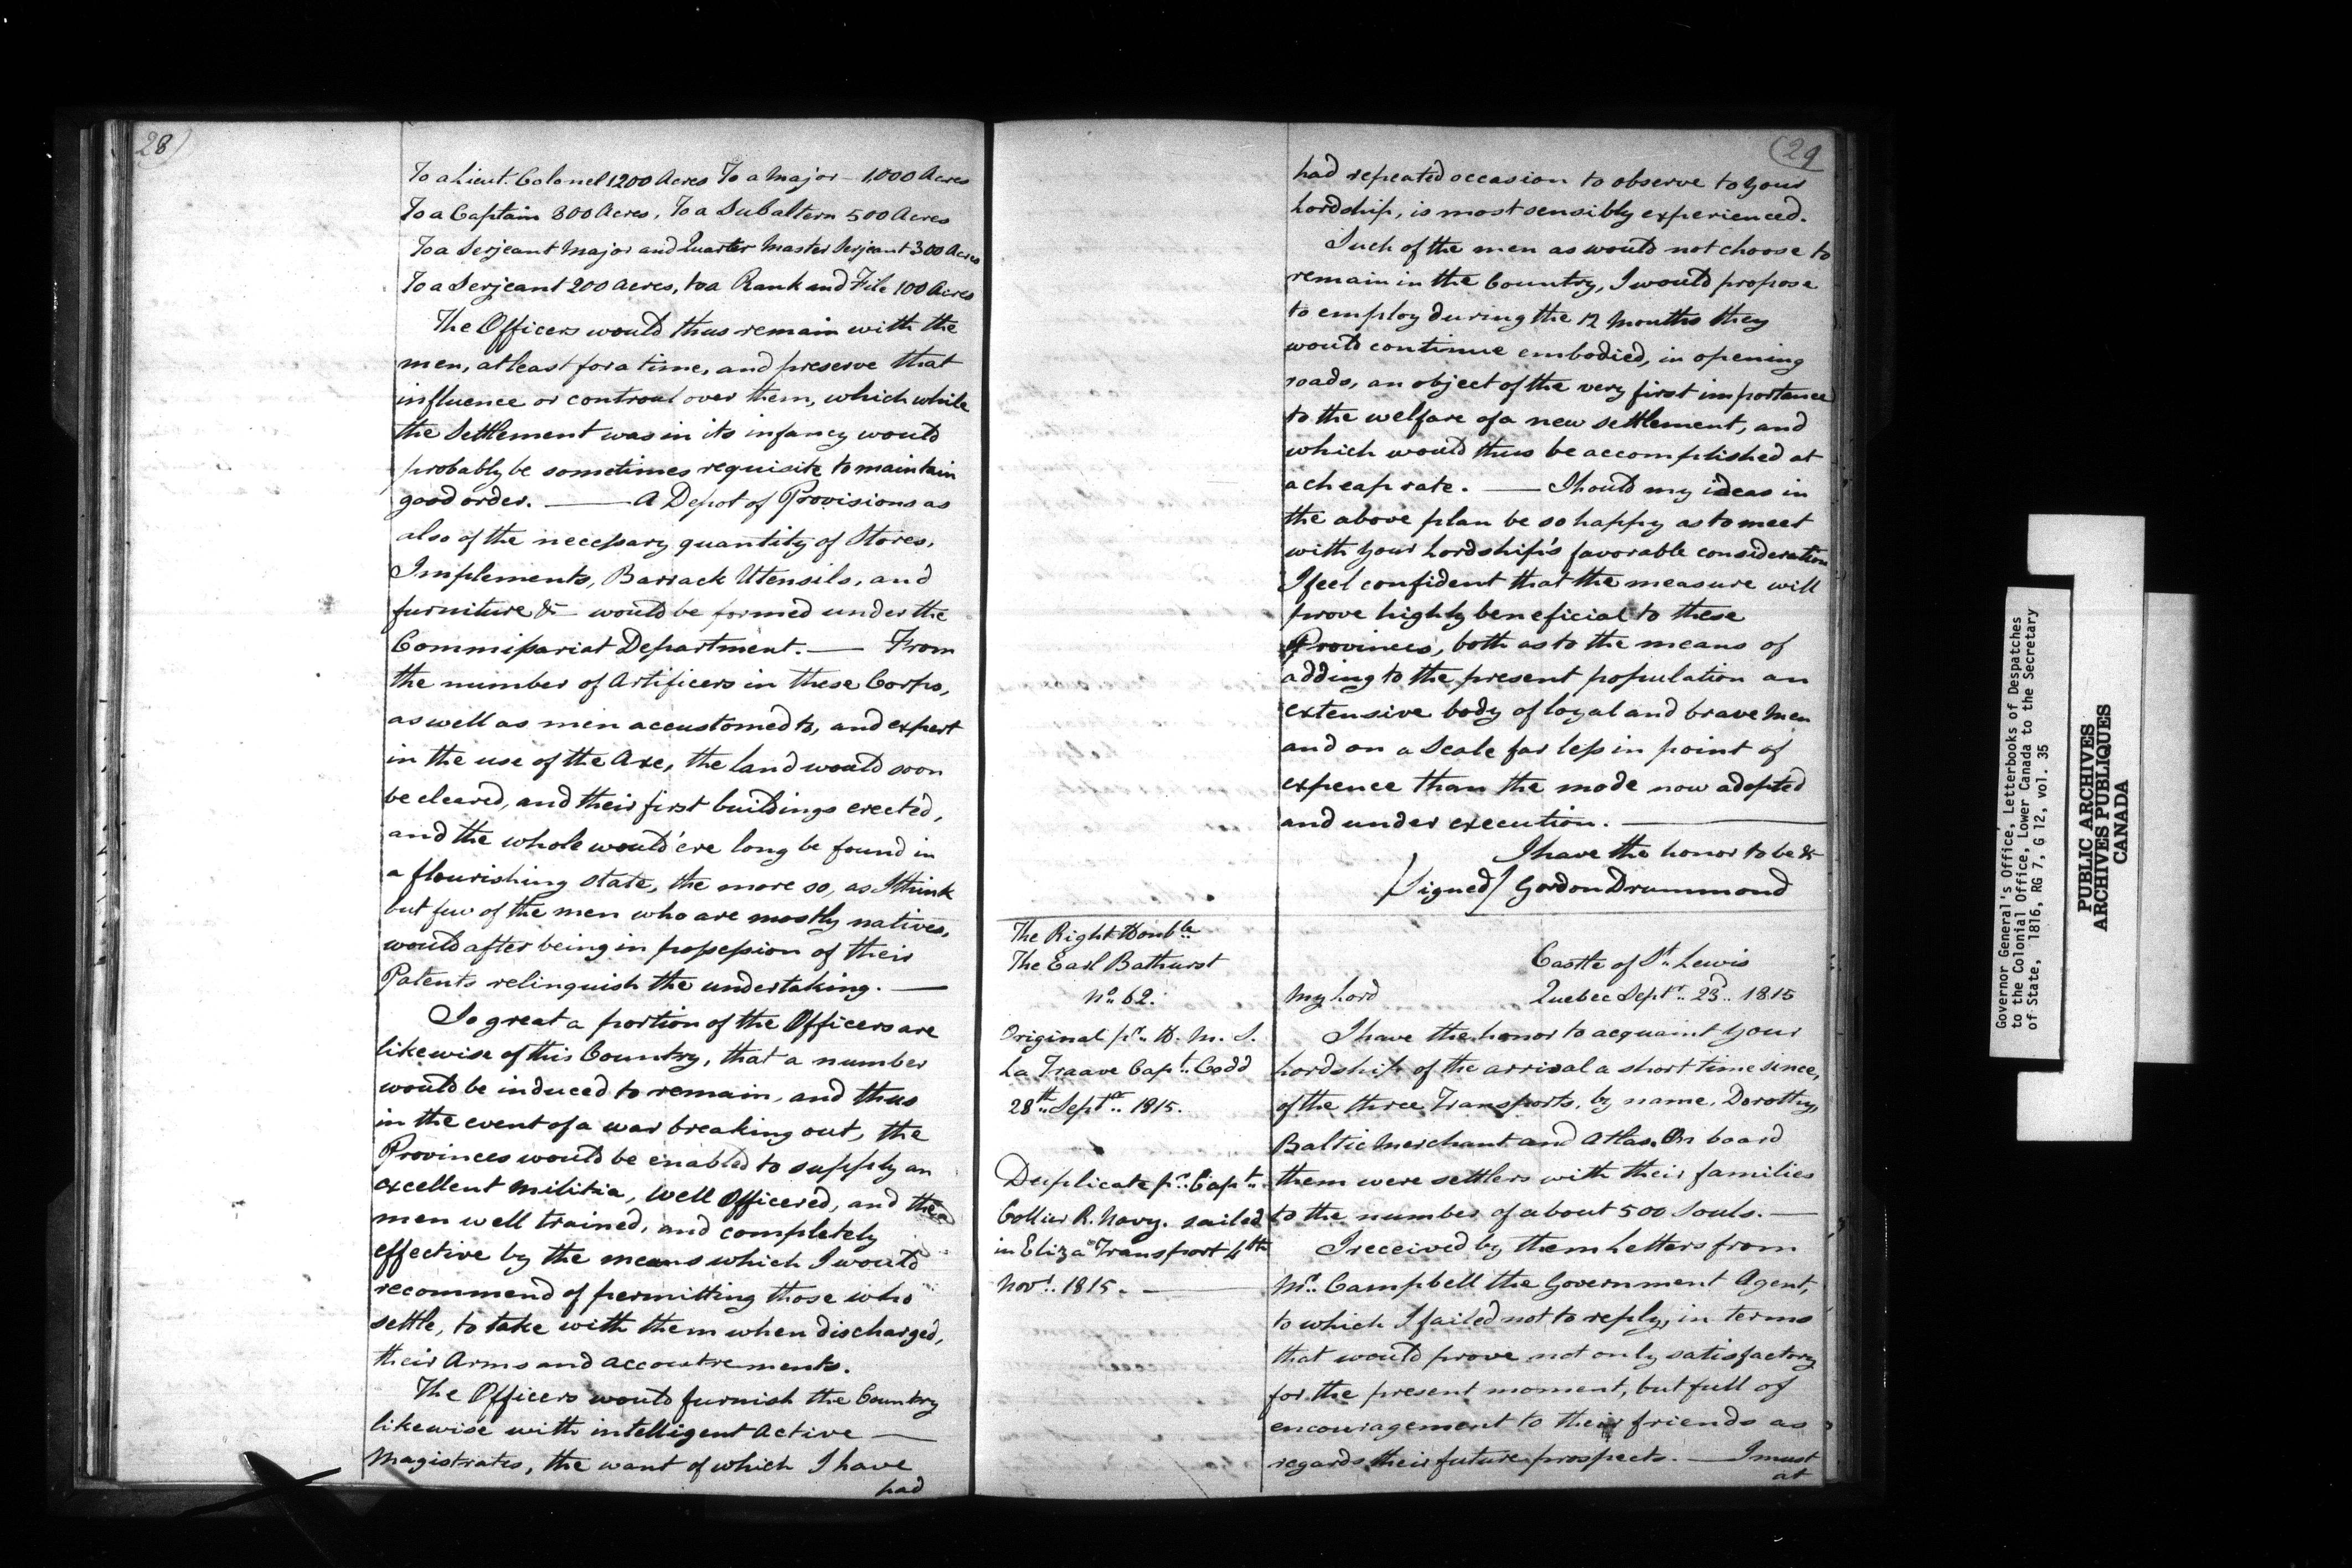 28)
To a Lieut. Colonel 1200 Acres To a Major - 1,000 Acres
To a Captain 800 Acres, To a Subaltern 500 Acres
To a Serjeant Major and Quarter Master Serjeant 300 Acres
To a Serjeant 200 Acres, to a Rank and File 100 Acres
The Officers would thus remain with the
men, at least for a time, and preserve that
influence or controul over them, which while
the Settlement was in its infancy would
probably be sometimes requisite to maintain
good order. — A Depot of Provisions as
also of the necessary quantity of Stores,
Implements, Barrack Utensils, and
furniture &c would be formed under the
Commissariat Department. — From
the number of Artificers in these Corps,
as well as men accustomed to, and expert
in the use of the Axe, the land would soon
be cleared, and their first buildings erected,
and the whole would 'ere long be found in
a flourishing state, the more so, as I think
but few of the men who are mostly natives,
would after being in possession of their
Patents relinquish the undertaking. —
So great a portion of the Officers are
likewise of this Country, that a number
would be induced to remain, and thus
in the event of a war breaking out, the
Provinces would be enabled to supply an
excellent Militia, well Officered, and the
men well trained, and completely
effective by the means which I would
recommend of permitting those who
settle, to take with them when discharged,
their Arms and accoutrements.
The Officers would furnish the Country
likewise with intelligent Active —
Magistrates, the want of which I have
had
(29
had repeated occasion to observe to Your
Lordship, is most sensibly experienced.
Such of the men as would not choose to
remain in the Country, I would propose
to employ during the 12 Months they
would continue embodied, in opening
roads, an object of the very first importance
to the welfare of a new settlement, and
which would thus be accomplished at
a cheap rate. — Should my ideas in
the above plan be so happy as to meet
with Your Lordship's favorable consideration
I feel confident that the measure will
prove highly beneficial to these
Provinces, both as to the means of
adding to the present population an
extensive body of loyal and brave Men
and on a Scale far less in point of
expence than the mode now adopted
and under execution. —
I have the honor to be &c
/Signed/ Gordon Drummond
The Right Honble
The Earl Bathurst
No. 62.
Original pr. H. M. S.
La Traave Capt. Codd
28th Septr. 1815.
Duplicate pr. Capt.
Collier R. Navy. sailed
in Eliza Transport 4th
Novr. 1815. —
Castle of St. Lewis
My Lord Quebec Septr. 23d. 1815
I have the honor to acquaint Your
Lordship of the arrival a short time since,
of the three Transports, by name, Dorothy,
Baltic Merchant and Atlas. On board
them were settlers with their families
to the number of about 500 Souls. —
I received by them Letters from
Mr. Campbell the Government Agent,
to which I failed not to reply, in terms
that would prove not only satisfactory
for the present moment, but full of
encouragement to their friends as
regards their future prospects. — I must
at
Governor General's Office, Letterbooks of Despatches
to the Colonial Office, Lower Canada to the Secretary
of State, 1816, RG 7, G 12, vol. 35
PUBLIC ARCHIVES
ARCHIVES PUBLIQUES
CANADA